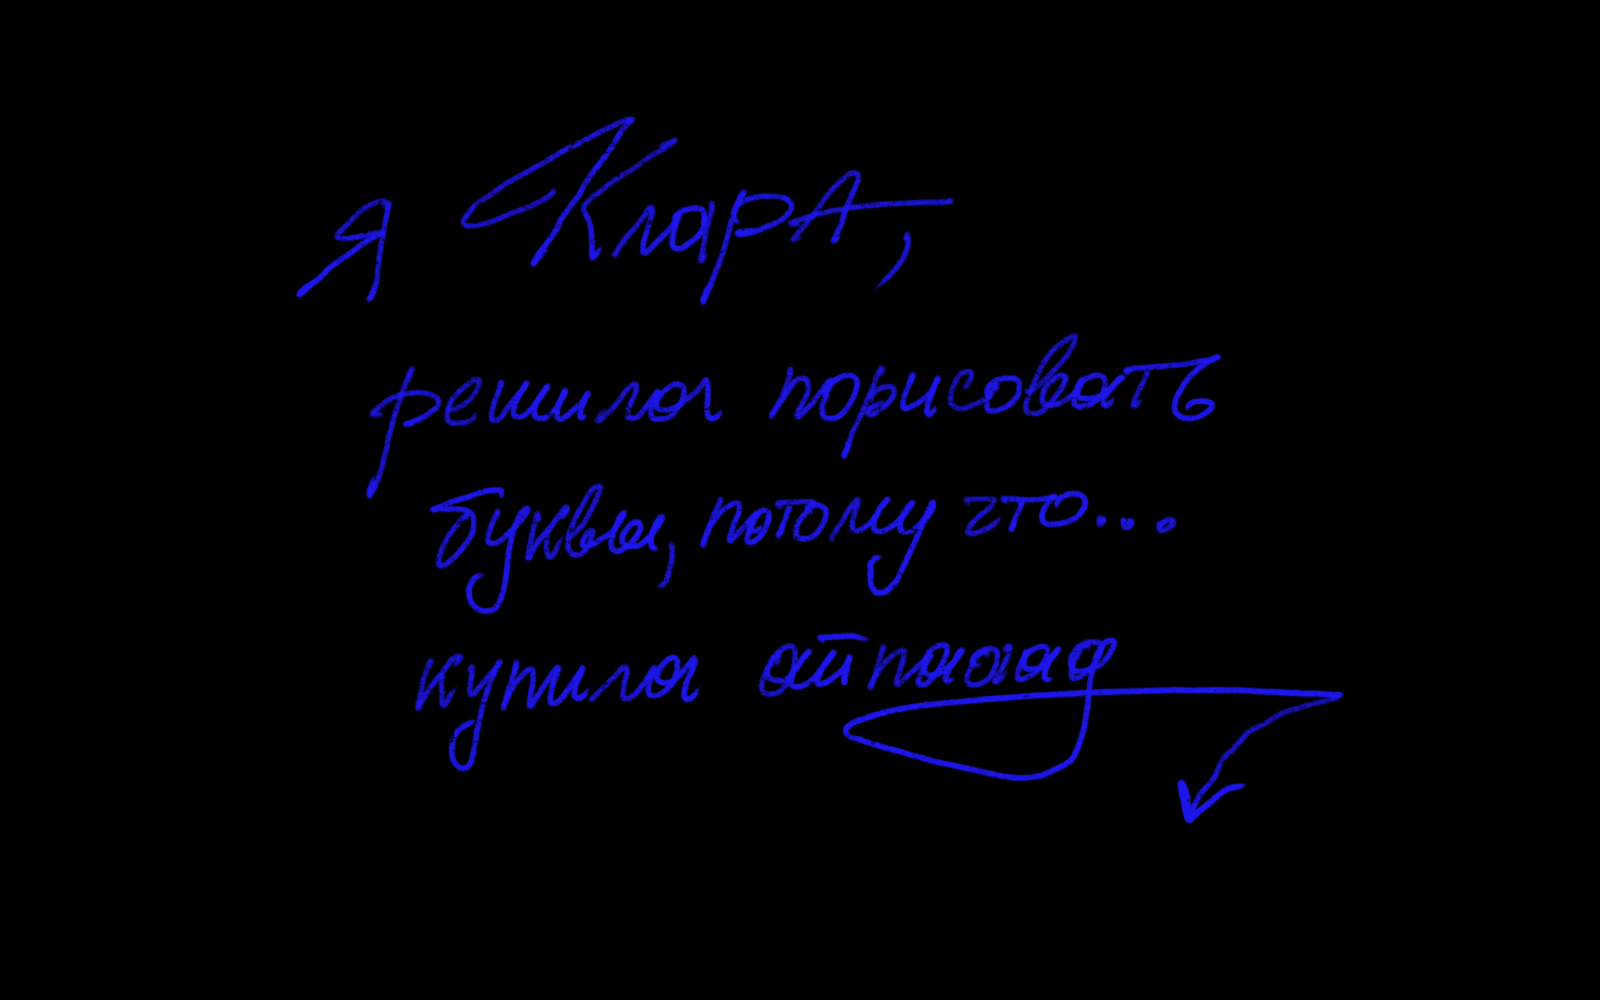 я Клара,
решила порисовать
буквы, потому что...
купила айпаааад